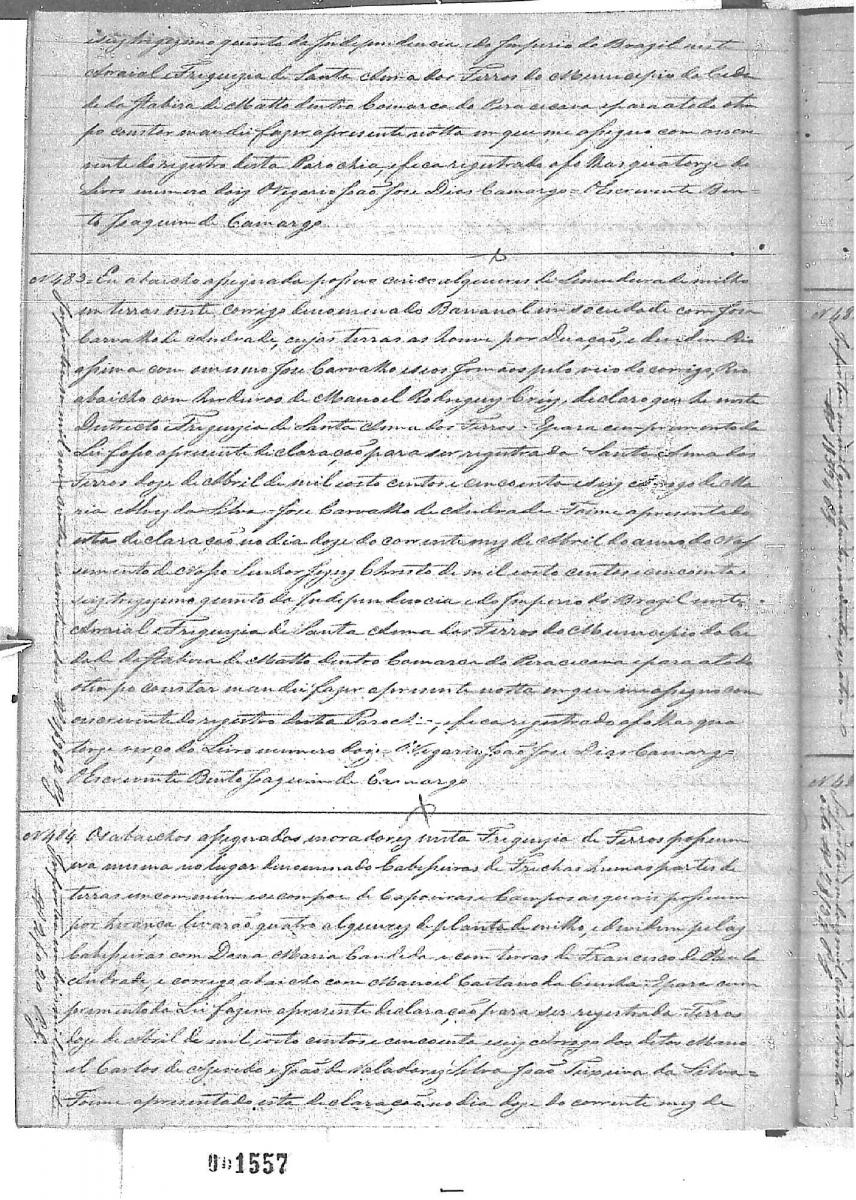 seis trigezimo quinto da Independencia e do Imperio do Brazil neste
Arraial e Freguezia de Santa Anna dos Ferros do Municipio da Cida
de da Itabira de Matto dentro Comarca do Peracicava e para a todo otem
po constar mandei fazer apresente notta em que me asegno com oescre
vente do registro desta Parochia, e fica registrado afolhas quatorze do
Livro numero doiz OVigario João Jose Dias Camargo = OEscrevente Ben-
to Joaquim de Camargo
N 483. Eu abaicho asegnada posuo cinco alqueires de Semeadura de milho
em terras neste corrigo denominado Bananal em sociedade com Jose
Carvalho de Andrade, cujas terras as houve por Duação, e devidem Rio
assima com o mesmo Jose Carvalho eseos Irmãos pelo veio do corrigo, Rio
abaicho com herdeiros de Manoel Rodriguez Criz, declaro que he neste
Destricto e Freguezia de Santa Anna dos Ferros - Epara cumprimento da
Lei faço apresente declaração para ser registrada Santa Anna dos
Ferros doze de Abril de mil eoito centos e cincoenta e seiz Arrogo de Ma
ria Alvez da Silva - Jose Carvalho de Andrade - Foime apresentado
esta declaração no dia doze do corrente mez de Abril do anno do Nas
cimento de Nosso Senhor Jezuz Christo de mil eoito centos e cincoenta e
seiz trigezimo quinto da Independencia e do Imperio do Brazil neste
Arraial e Freguezia de Santa Anna dos Ferros do Municipio da Ci
dade da Itabira de Matto dentro Comarca do Peracicava e para a todo
otempo constar mandei fazer apresente notta em que me asegno com
oescrevente do registro desta Parochia, e fica registrado afolhas qua
torze verço do Livro numero doiz OVigario João Jose Dias Camargo =
OEscrevente Bento Joaquim de Camargo
N 484 Os abaichos asegnados moradorez nesta Freguezia de Ferros posuem
na mesma no lugar denominado Cabeseiras de Frechas humas partes de
terras em commum e se compoe de Capoeiras e Campos as quais posuem
por herança levarão quatro alqueirez de planta de milho, e devidem pelaz
Cabeseiras com Dona Maria Candida e com terras de Francisco de Paula
Andrade, e corrigo abaicho com Manoel Caetano da Cunha - Epara cum
primento da Lei fazem apresente declaração para ser rezestrada Ferros
doze de Abril de mil eoito centos e cincoenta e seiz Arrogo dos ditos Mano
el Carlos de Azevedo e João de Valadarez Silva João Teixeira da Silva =
Foime apresentado esta declaração no dia doze do corrente mez de
001557